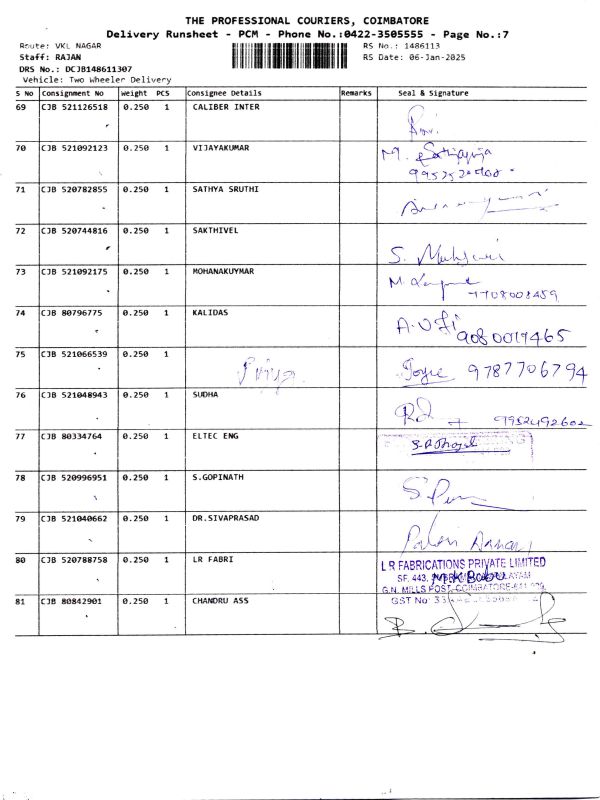 THE PROFESSIONAL COURIERS, COIMBATORE
Delivery Runsheet - PCM - Phone No.:0422-3505555 - Page No.:7
Route: VKL NAGAR RS No.: 1486113
Staff: RAJAN RS Date: 06-Jan-2025
DRS No.: DCJB148611307
Vehicle: Two Wheeler Delivery
S No Consignment No Weight PCS Consignee Details Remarks Seal & Signature
69 CJB 521126518 0.250 1 CALIBER INTER
70 CJB 521092123 0.250 1 VIJAYAKUMAR M.
71 CJB 520782855 0.250 1 SATHYA SRUTHI
72 CJB 520744816 0.250 1 SAKTHIVEL S.
73 CJB 521092175 0.250 1 MOHANAKUYMAR M
7708008459
74 CJB 80796775 0.250 1 KALIDAS
9080019465
75 CJB 521066539 0.250 1 Priya Joyce 9787706794
76 CJB 521048943 0.250 1 SUDHA 9952492602
77 CJB 80334764 0.250 1 ELTEC ENG
78 CJB 520996951 0.250 1 S.GOPINATH
79 CJB 521040662 0.250 1 DR.SIVAPRASAD
80 CJB 520788758 0.250 1 LR FABRI L R FABRICATIONS PRIVATE LIMITED
SF. 443, M.K.Babu
G.N. MILLS POST, COIMBATORE-641 029
81 CJB 80842901 0.250 1 CHANDRU ASS GST No: 33
B.